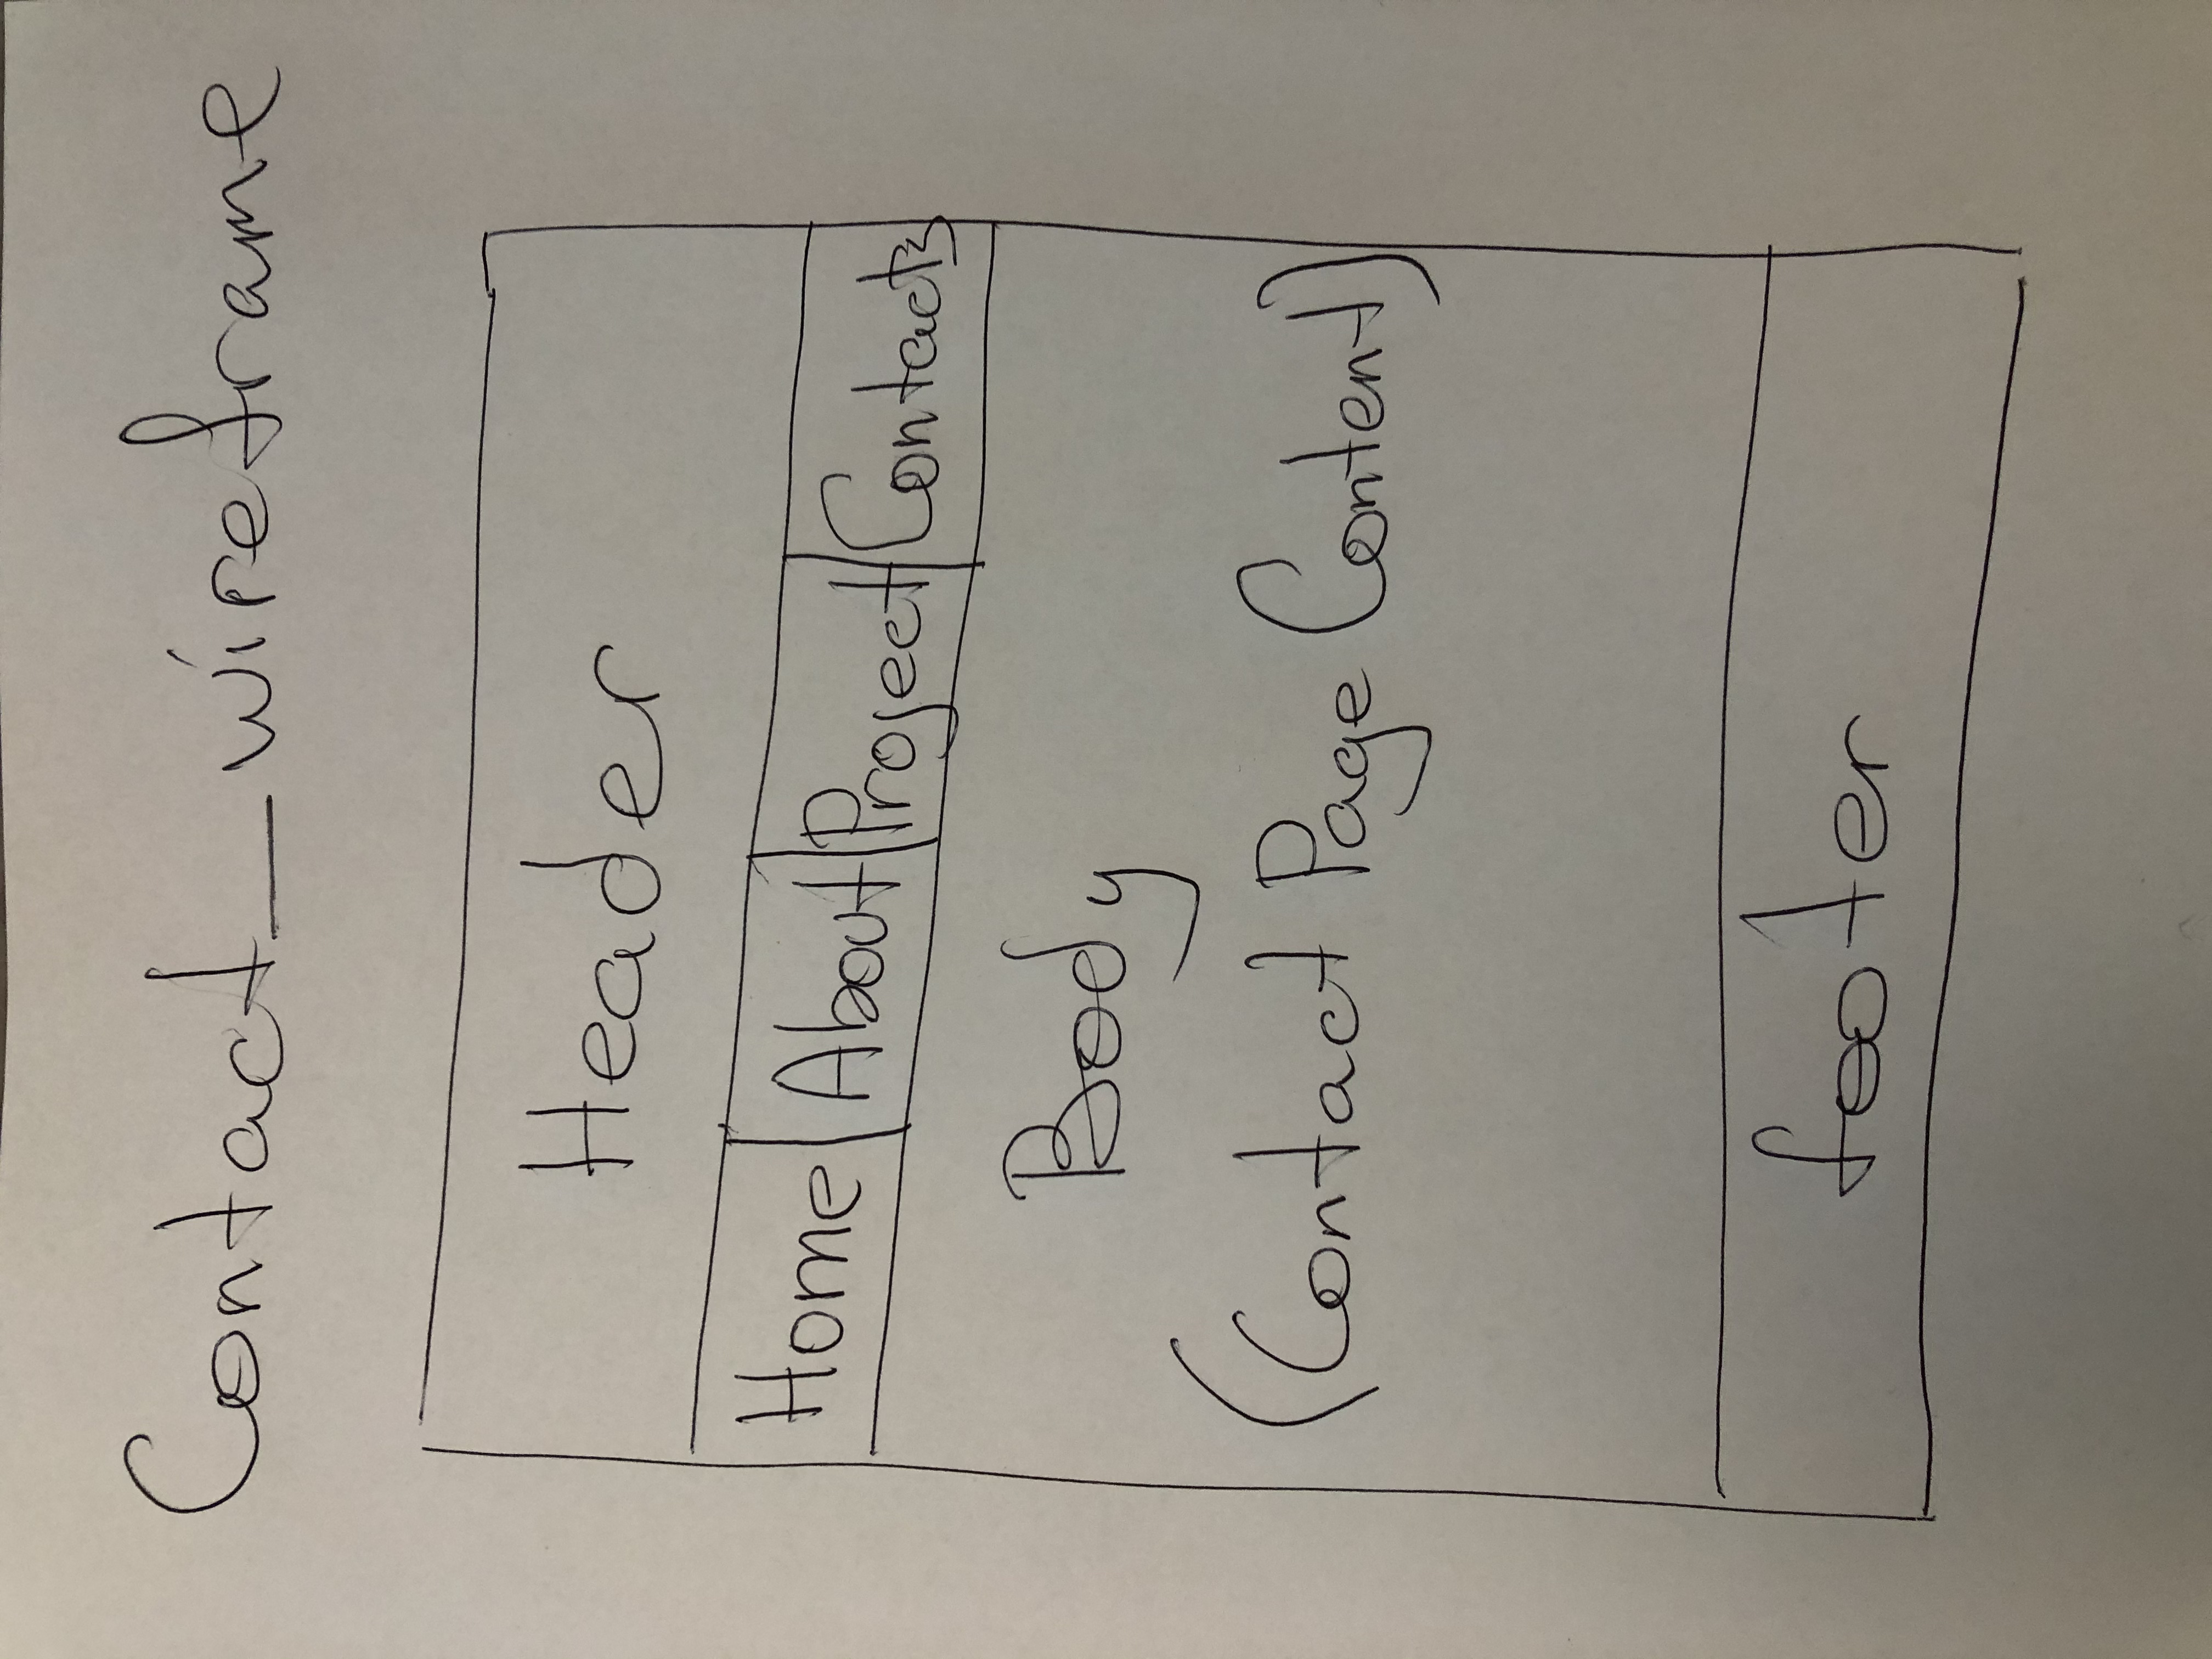 Contact_wireframe
Header
Home About Project Contacts
Body
(Contact Page Content)
footer